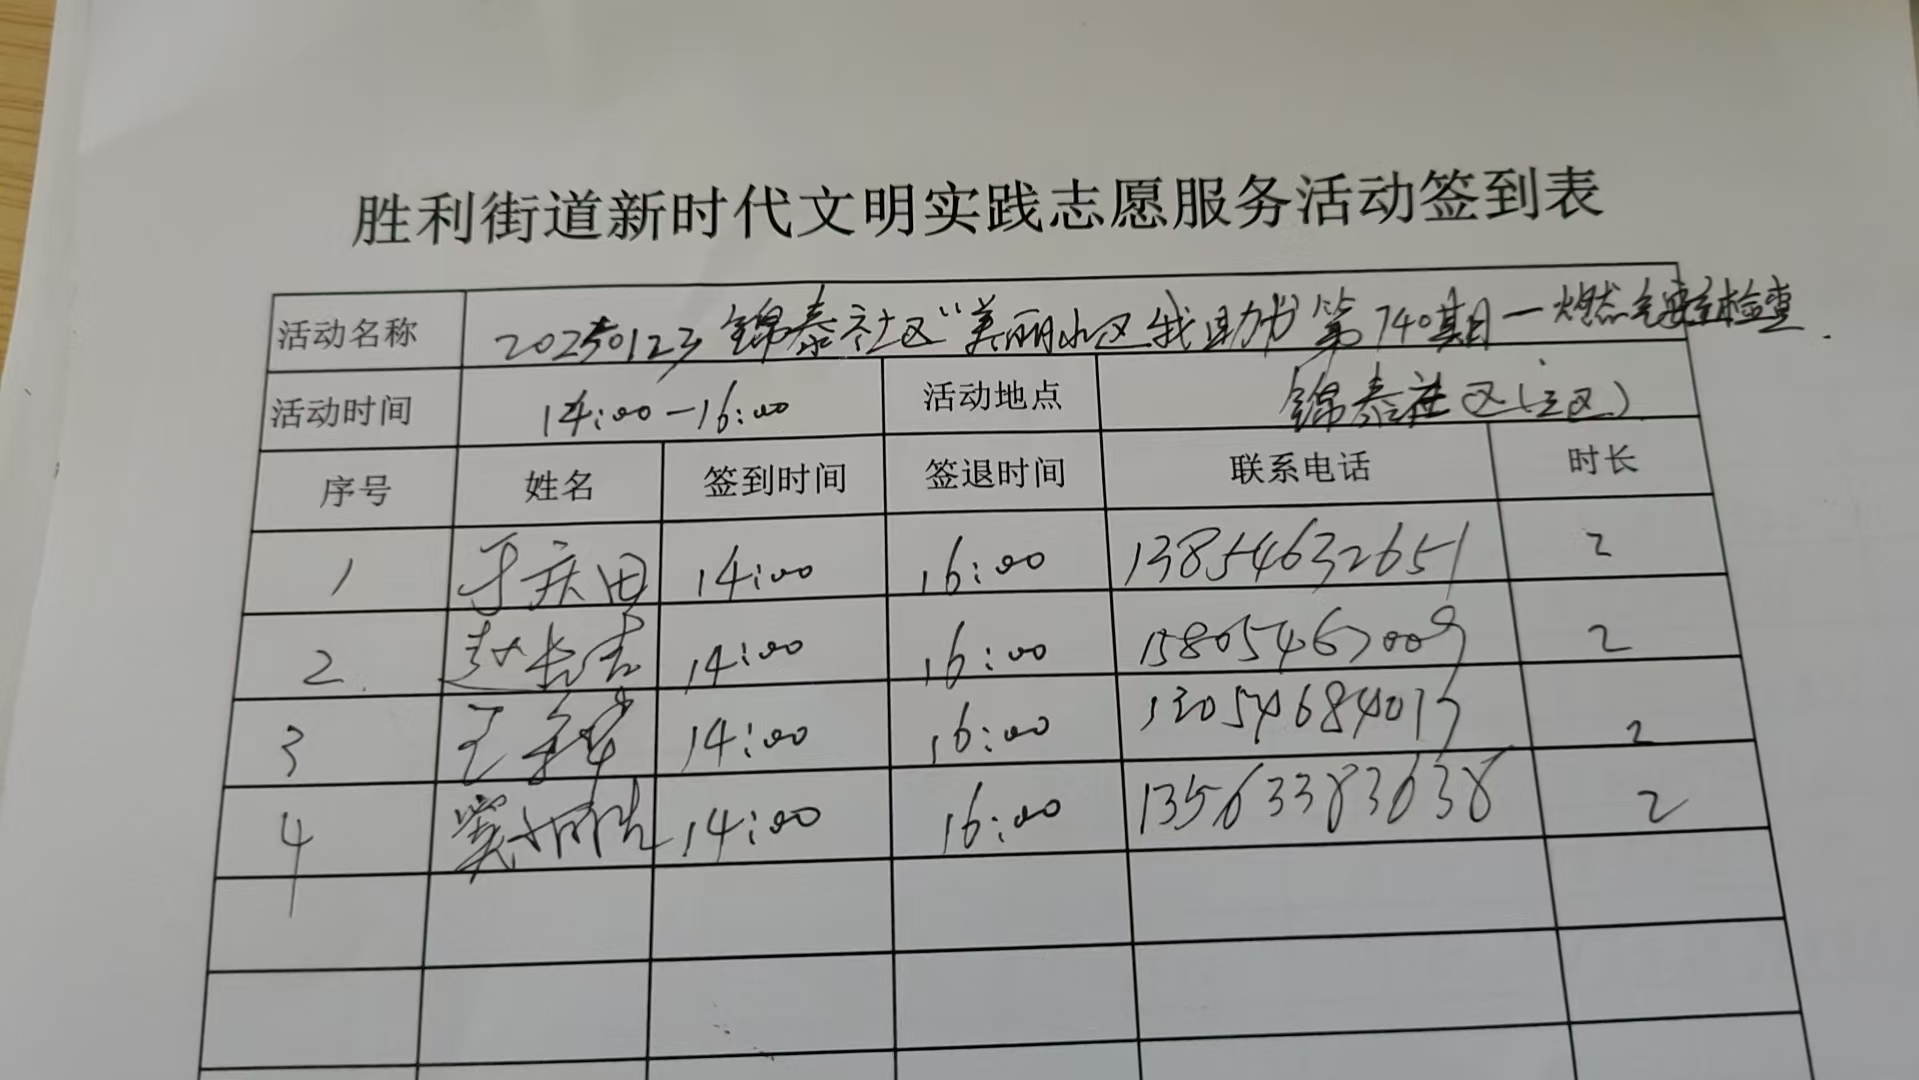 胜利街道新时代文明实践志愿服务活动签到表
活动名称 20250123锦泰社区"美丽小区我助力"第740期—燃气安全检查.
活动时间 14:00-16:00 活动地点 锦泰社区()
序号 姓名 签到时间 签退时间 联系电话 时长
1 于庆田 14:00 16:00 13854632651 2
2. 赵长吉 14:00 16:00 15805467009 2
3 王 14:00 16:00 2
4 窦 14:00 16:00 13563383638 2